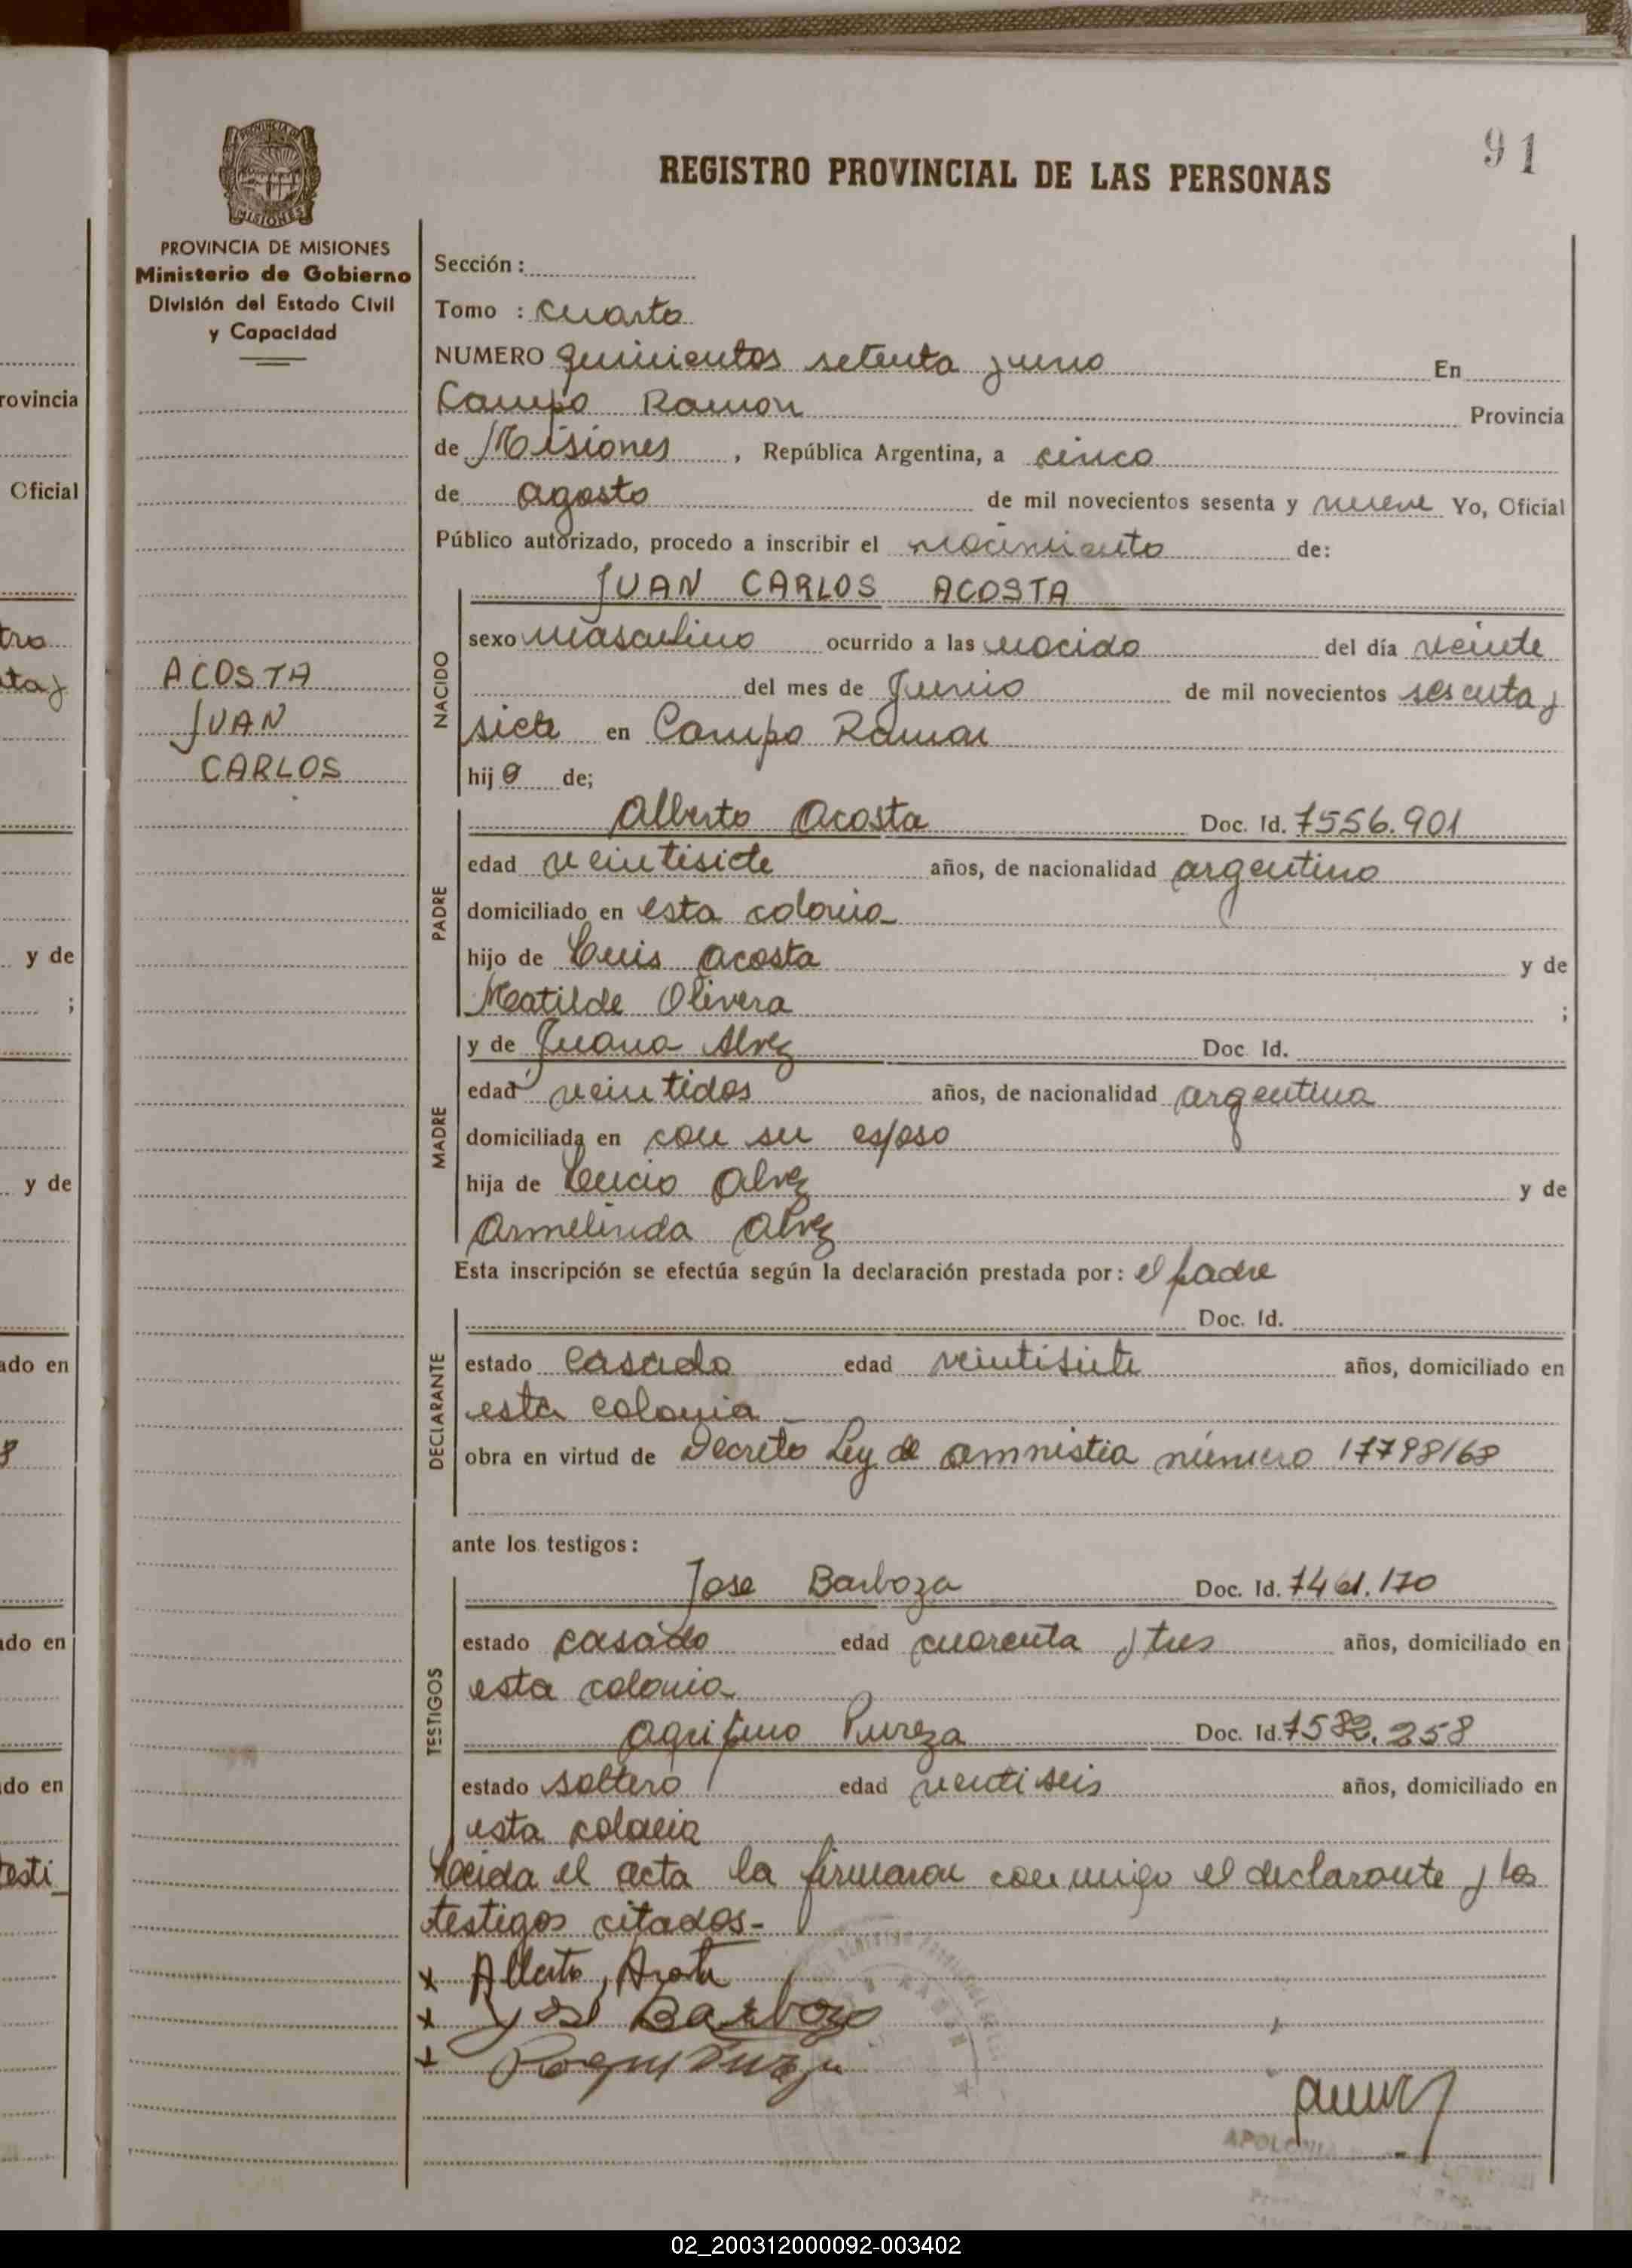 91
REGISTRO PROVINCIAL DE LAS PERSONAS
PROVINCIA DE MISIONES
Ministerio de Gobierno
División del Estado Civil
y Capacidad
Sección :
Tomo : cuarto
NUMERO quinientos setenta y uno En
Campo Ramon Provincia
de Misiones , República Argentina, a cinco
de agosto de mil novecientos sesenta y nueve Yo, Oficial
Público autorizado, procedo a inscribir el nacimiento de:
ACOSTA
JUAN
CARLOS
NACIDO
JUAN CARLOS ACOSTA
sexo masculino ocurrido a las nacido del día veinte
del mes de Junio de mil novecientos sesenta y
siete en Campo Ramon
hijo de;
PADRE
Alberto Acosta Doc. Id. 7556.901
edad veintisiete años, de nacionalidad argentino
domiciliado en esta colonia
hijo de Luis Acosta y de
Matilde Olivera ;
MADRE
y de Juana Alvez Doc. Id.
edad veintidos años, de nacionalidad argentina
domiciliada en con su esposo
hija de Lucio Alvez y de
Armelinda Alvez
Esta inscripción se efectúa según la declaración prestada por: el padre
DECLARANTE
Doc. Id.
estado casado edad veintisiete años, domiciliado en
esta colonia
obra en virtud de Decreto Ley de amnistia número 17798/68
ante los testigos:
TESTIGOS
Jose Barboza Doc. Id. 7461.170
estado casado edad cuarenta y tres años, domiciliado en
esta colonia
Pureza Doc. Id. 7582.258
estado soltero edad ventiseis años, domiciliado en
esta colonia
Leida el acta la firmaron conmigo el declarante y los
testigos citados-
x Alberto, Acosta
x Barbozo
x
APOLONIA
rovincia
Oficial
y de
;
y de
ado en
ado en
do en
testi
02_200312000092-003402